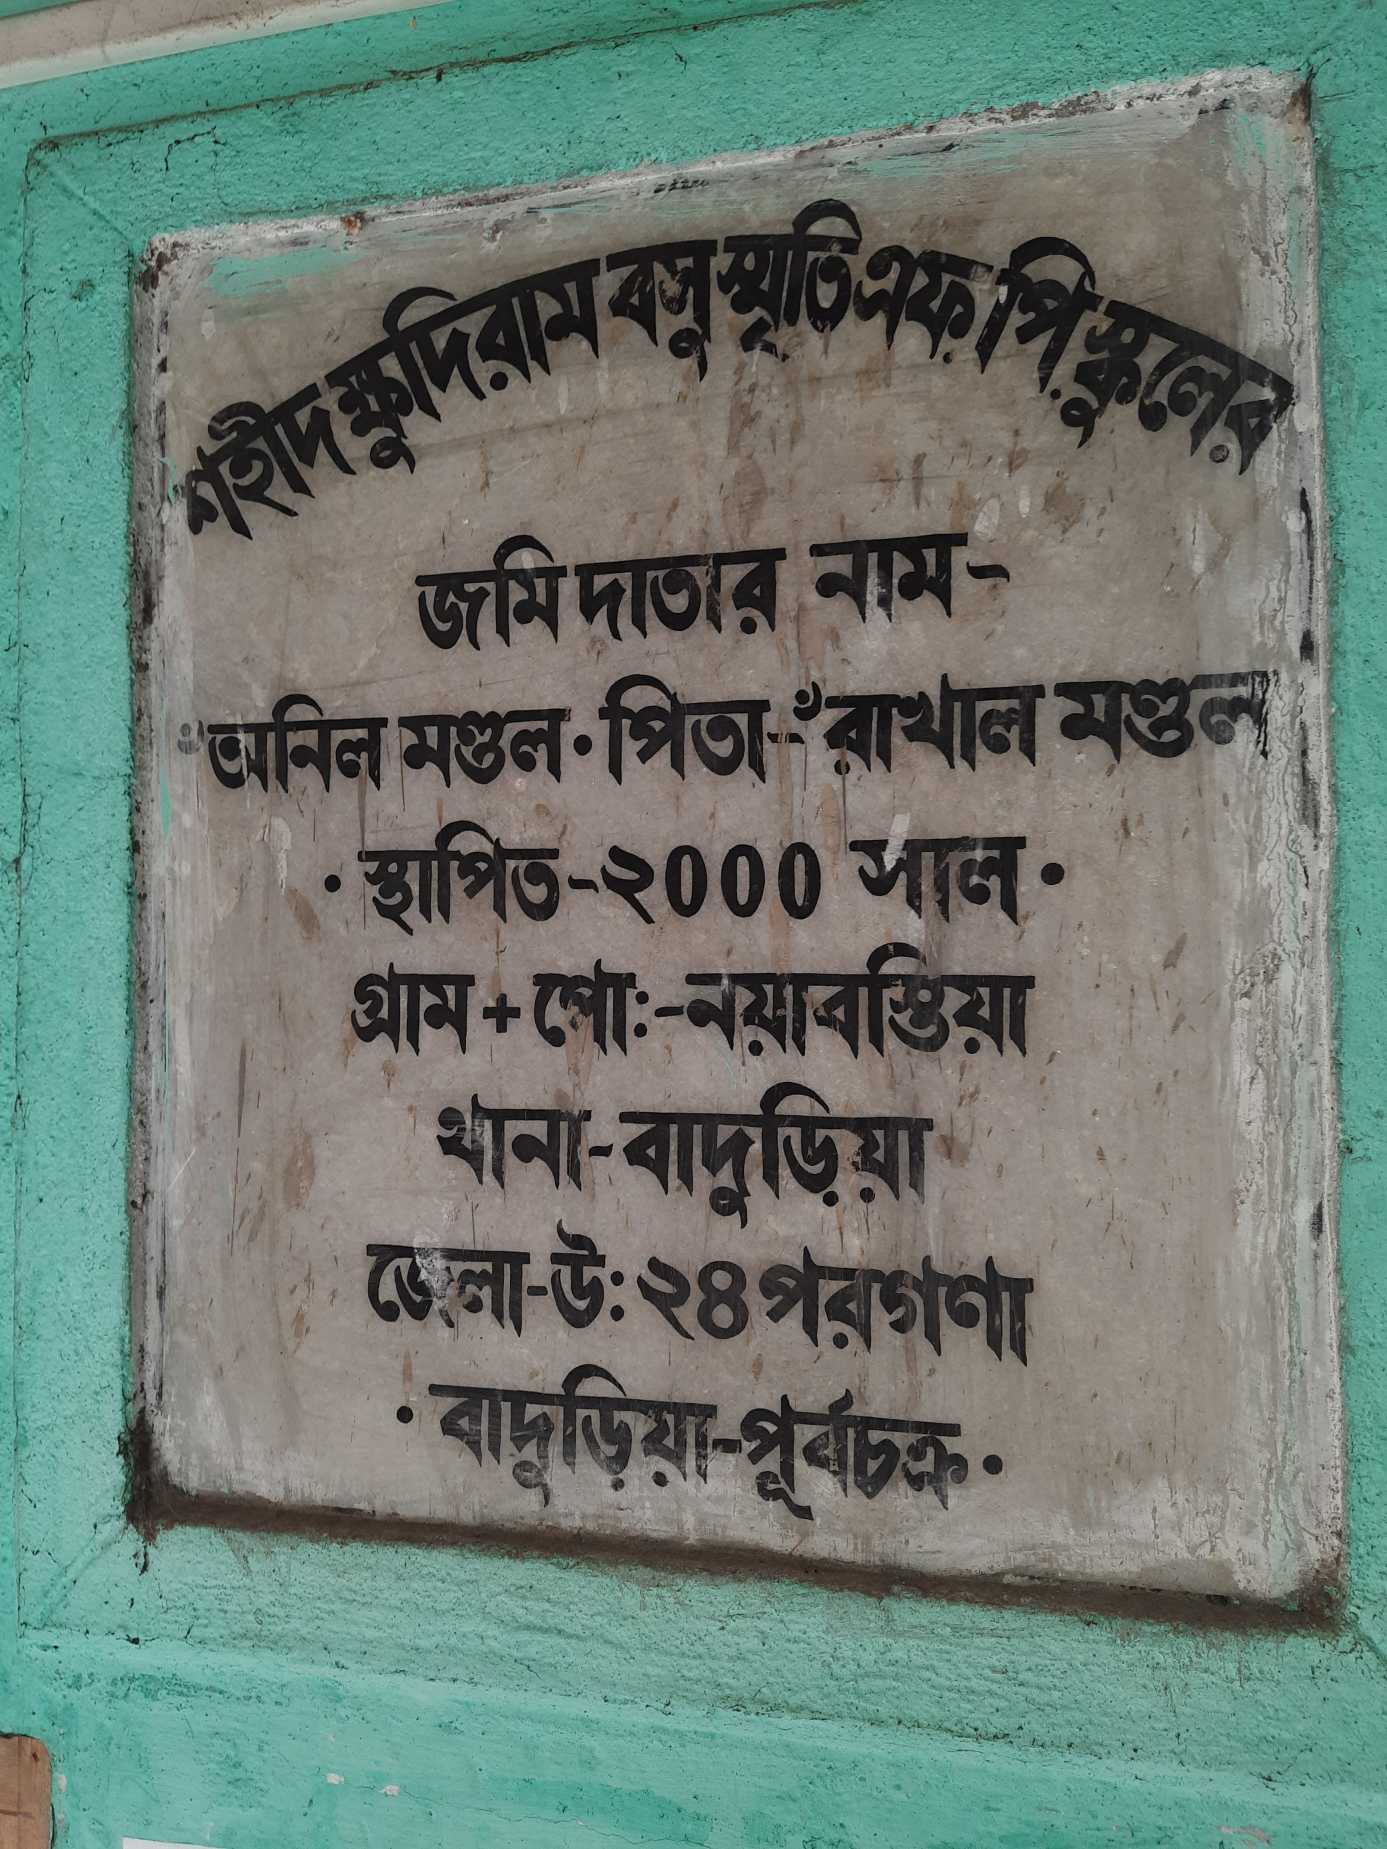 শহীদ ক্ষুদিরাম বসু স্মৃতি এফ.পি.স্কুলের
জমি দাতার নাম-
ঁঅনিল মণ্ডল·পিতা-ঁরাখাল মণ্ডল
·স্থাপিত-২০০০ সাল·
গ্রাম+পো:-নয়াবস্তিয়া
থানা-বাদুড়িয়া
জেলা-উ:২৪পরগণা
·বাদুড়িয়া-পূর্বচক্র·